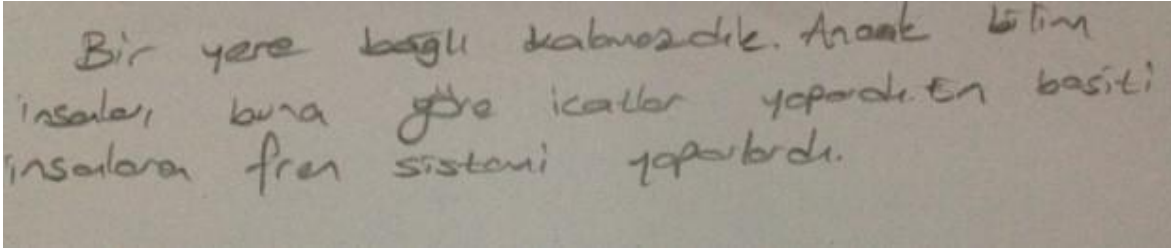 Bir yere bağlı kalmazdık. Ancak bilim
insanları buna göre icatlar yapardı. En basiti
insanlara fren sistemi yaparlardı.